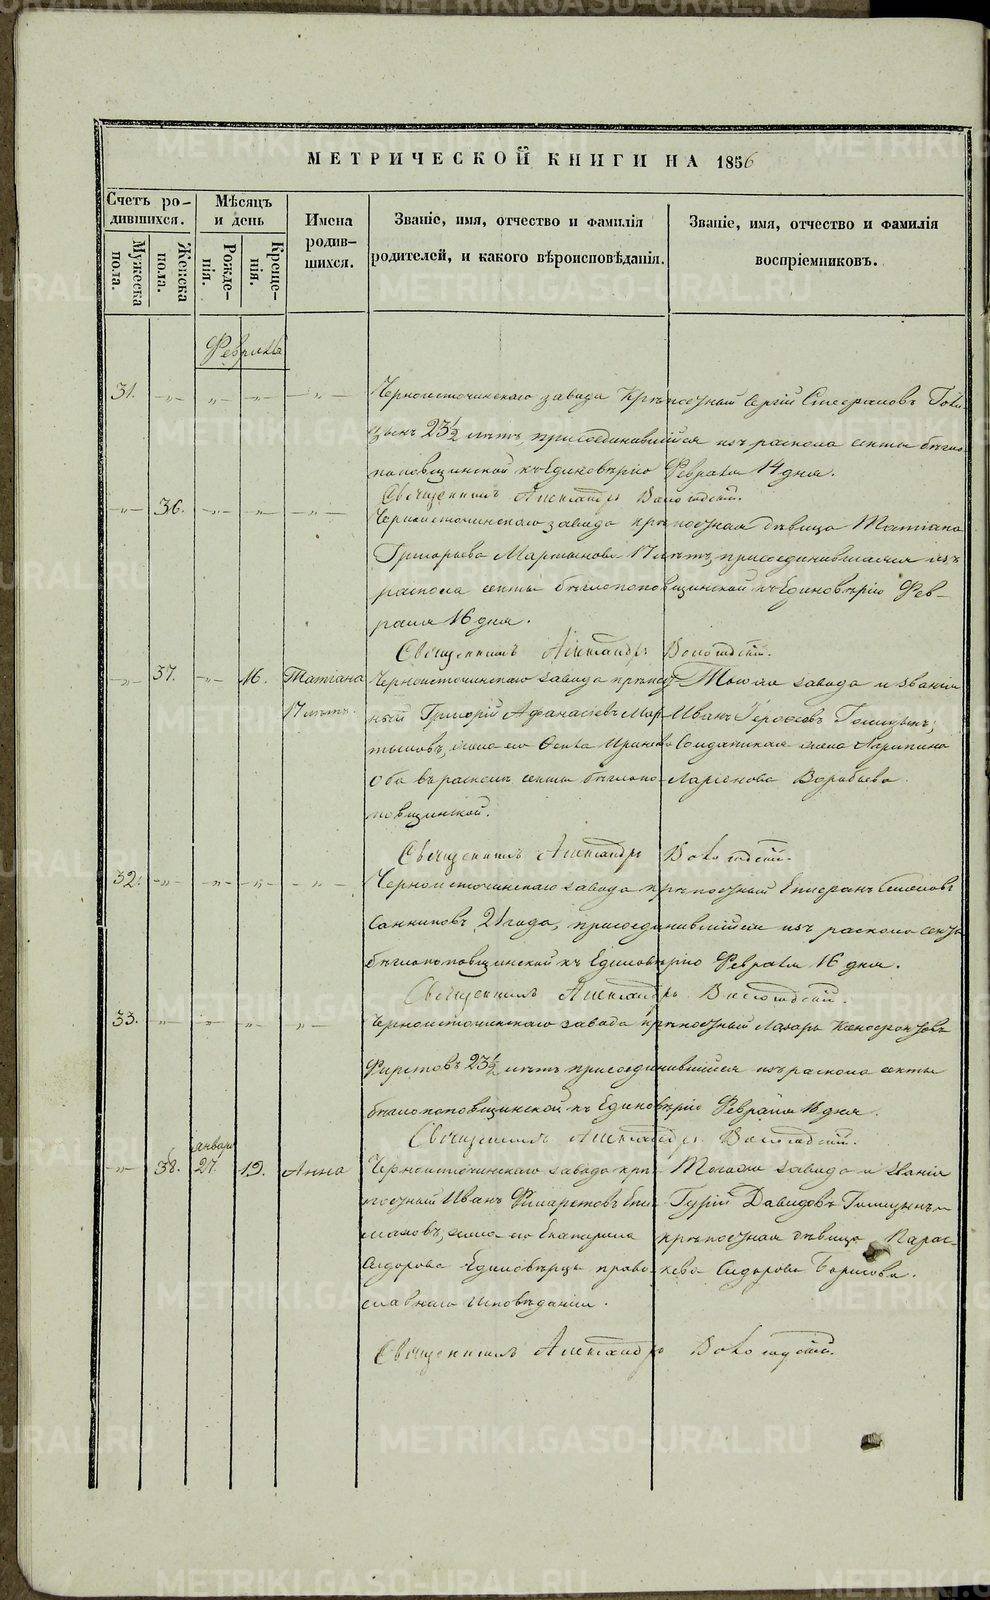 МЕТРИЧЕСКОЙ КНИГИ НА 1856
Счетъ родившихся.
Мѣсяцъ и день
Имена родившихся.
Званіе, имя, отчество и фамилія родителей, и какого вѣроисповѣданія.
Званіе, имя, отчество и фамилія воспріемниковъ.
Мужеска пола.
Женска пола.
Рожденія.
Крещенія.
Февраль
31. Черноисточинскаго завода крѣпостный Сергій Стефановъ Голи-
цынъ 23½ лѣтъ, присоединившійся изъ раскола секты бѣгло-
поповщинской къ Единовѣрію Февраля 14 дня.
Священникъ Александръ Вологодскій.
36. Черноисточинскаго завода крѣпостная дѣвица Татіана
Григорьева Мартынова 17 лѣтъ, присоединившаяся изъ
раскола секты бѣглопоповщинской къ Единовѣрію Фев-
раля 16 дня.
Священникъ Александръ Вологодскій.
37. 16. Татіана Черноисточинскаго завода крѣпост- Тогоже завода и званія
17 лѣтъ. ный Григорій Афанасьевъ Мар- Иванъ Ерофеевъ Голицынъ;
тыновъ, жена его Солдатская жена
Оба въ расколѣ секты бѣглопо- Ларіонова Воробьева.
повщинской.
Священникъ Александръ Вологодскій.
32. Черноисточинскаго завода крѣпостный Епифанъ Семеновъ
Санниковъ 21 года, присоединившійся изъ раскола секты
бѣглопоповщинской къ Единовѣрію Февраля 16 дня.
Священникъ Александръ Вологодскій.
33. Черноисточинскаго завода крѣпостный Лазарь Ксенофонтовъ
23½ лѣтъ присоединившійся изъ раскола секты
бѣглопоповщинской къ Единовѣрію Февраля 16 дня.
Священникъ Александръ Вологодскій.
38. Январь 27. 19. Анна Черноисточинскаго завода крѣ- Тогоже завода и званія
постный Иванъ Филаретовъ Гурій Давидовъ Голицынъ и
жена его Екатерина крѣпостная дѣвица Парас-
Сидорова Единовѣрцы право- кева Сидорова Борисова.
славнаго исповѣданія.
Священникъ Александръ Вологодскій.
METRIKI.GASO-URAL.RU